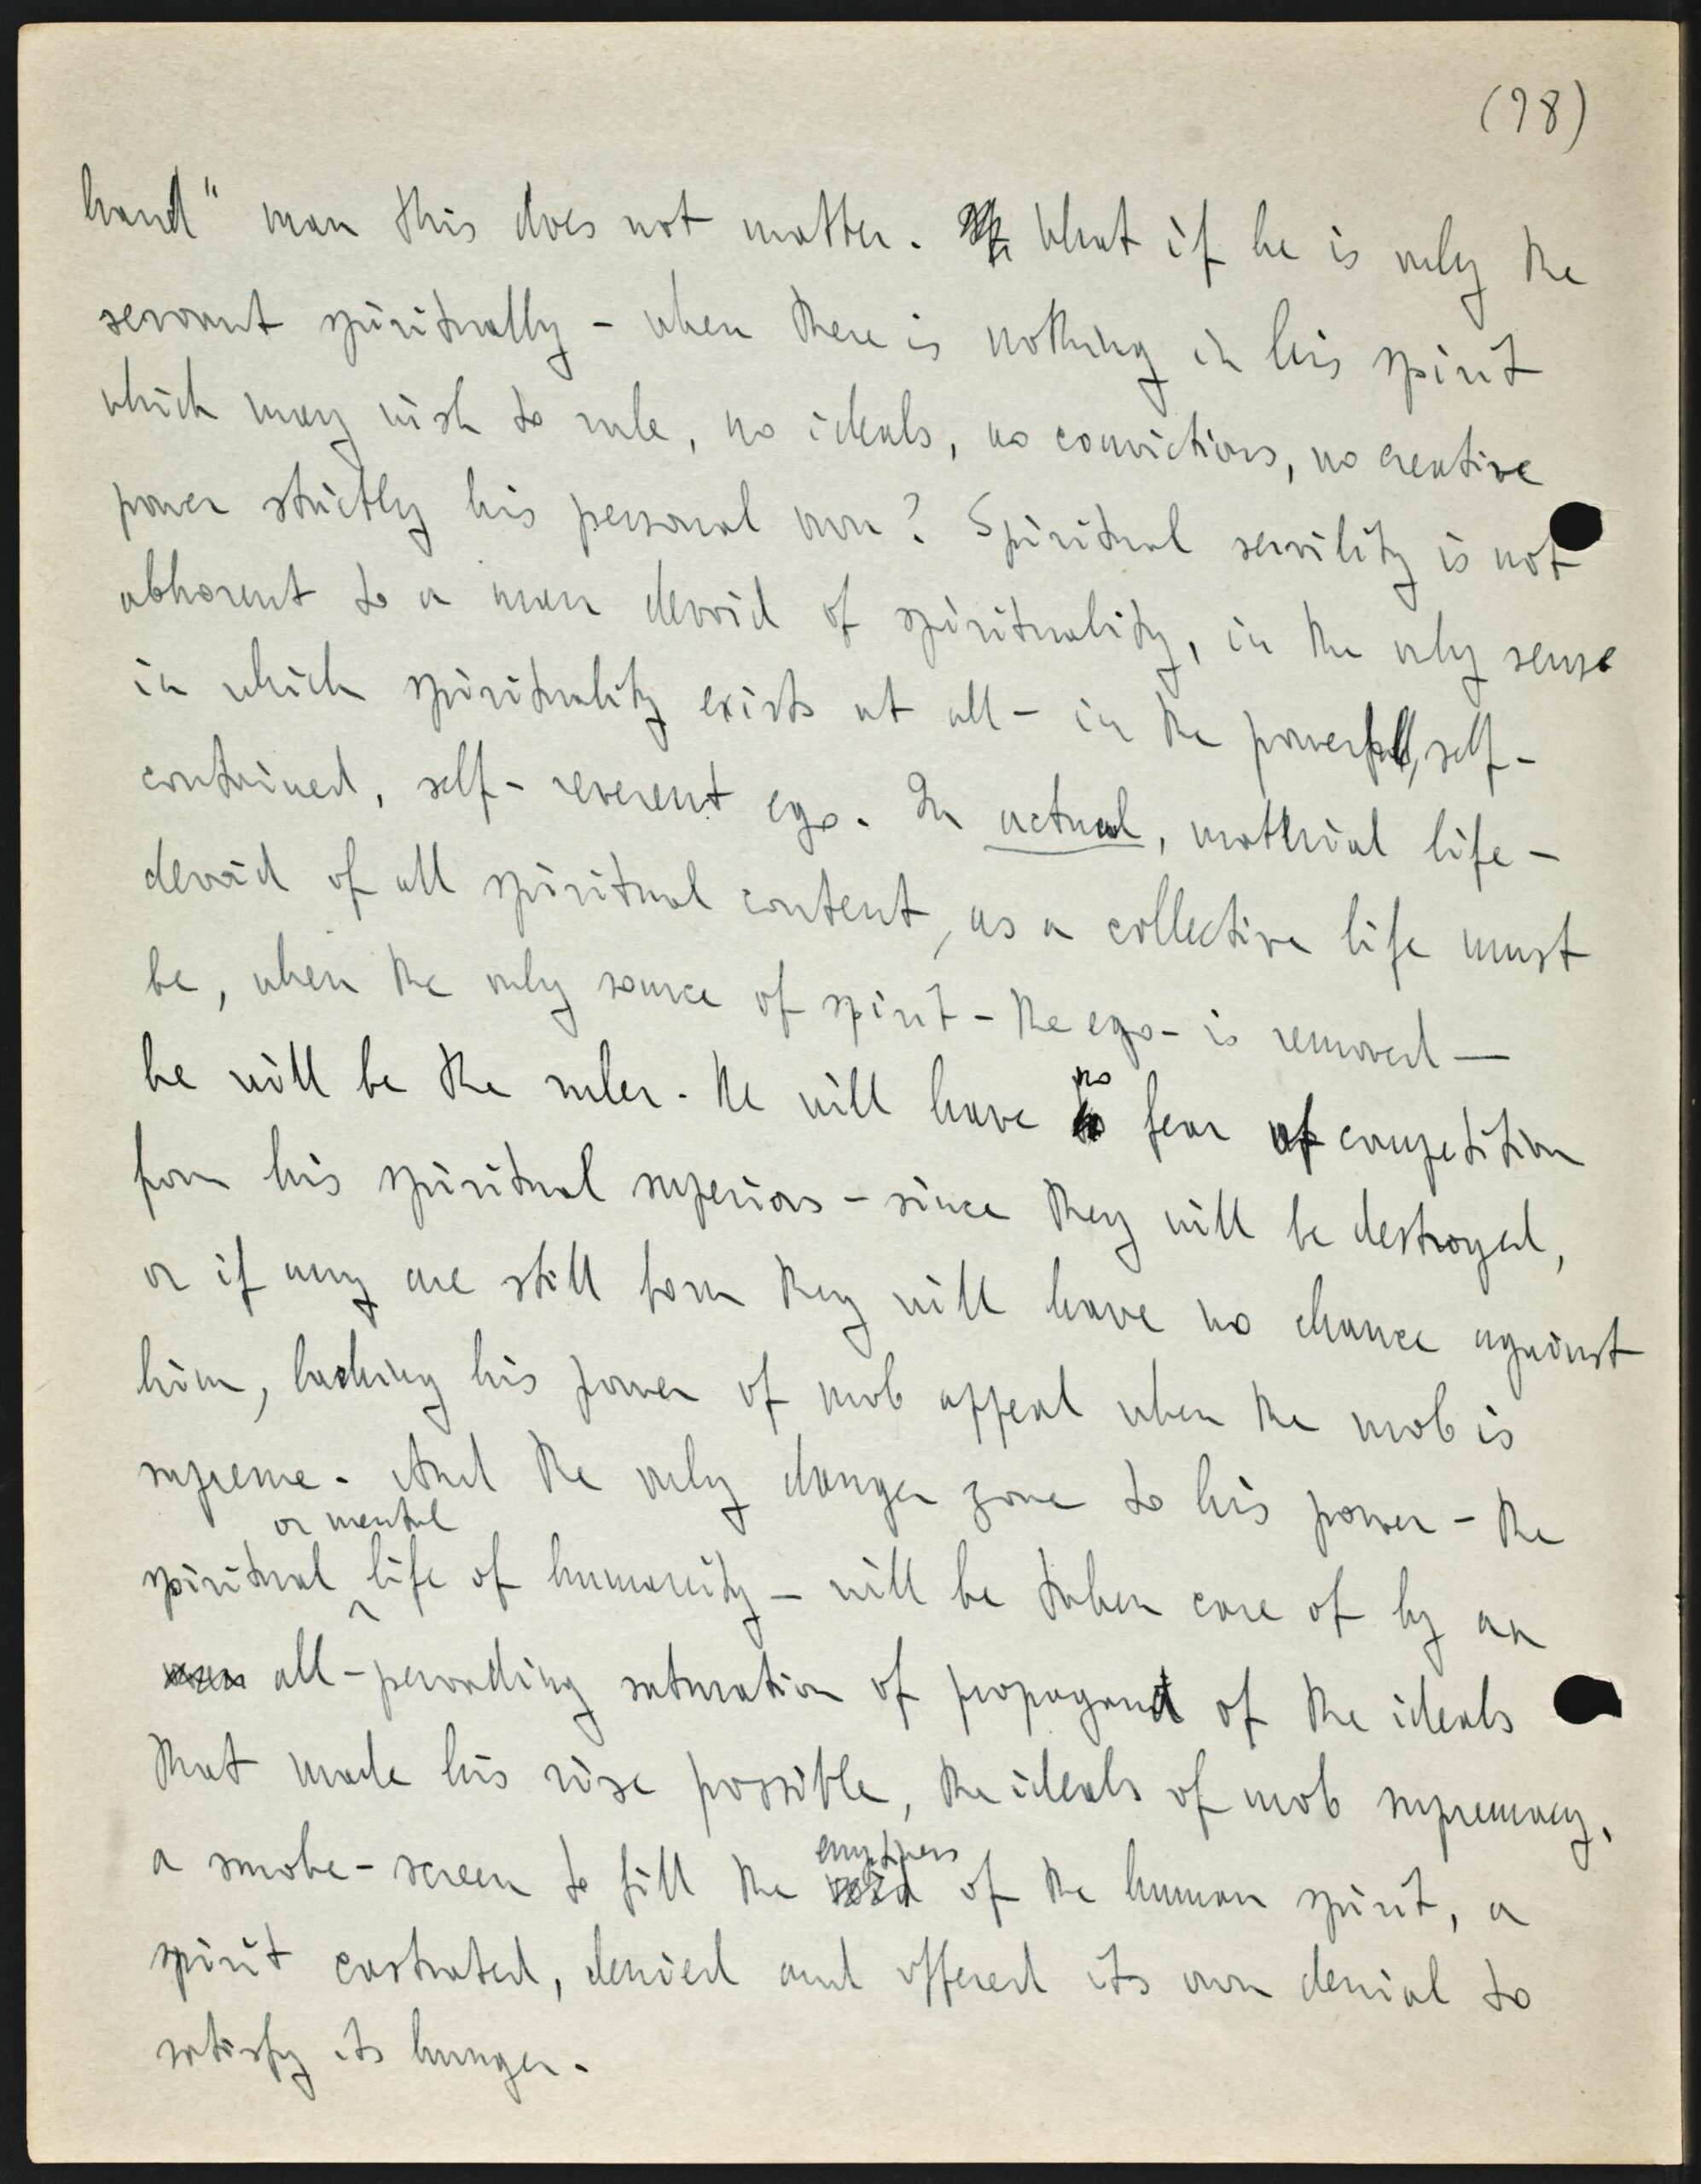 (98)
hand" man this does not matter. What if he is only the
servant spiritually - when there is nothing in his spirit
which may wish to rule, no ideals, no convictions, no creative
power strictly his personal own? Spiritual servility is not
abhorent to a man devoid of spirituality, in the only sense
in which spirituality exists at all - in the powerful, self-
contained, self-reverent ego. In actual, material life -
devoid of all spiritual content, as a collective life must
be, when the only source of spirit - the ego - is removed —
he will be the ruler. He will have no fear of competition
from his spiritual superiors - since they will be destroyed,
or if any are still born they will have no chance against
him, lacking his power of mob appeal when the mob is
supreme. And the only danger zone to his power - the
spiritual or mental life of humanity - will be taken care of by an
all-pervading saturation of propagand of the ideals
that made his rise possible, the ideals of mob supremacy,
a smoke-screen to fill the emptiness of the human spirit, a
spirit castrated, denied and offered its own denial to
satisfy its hunger.